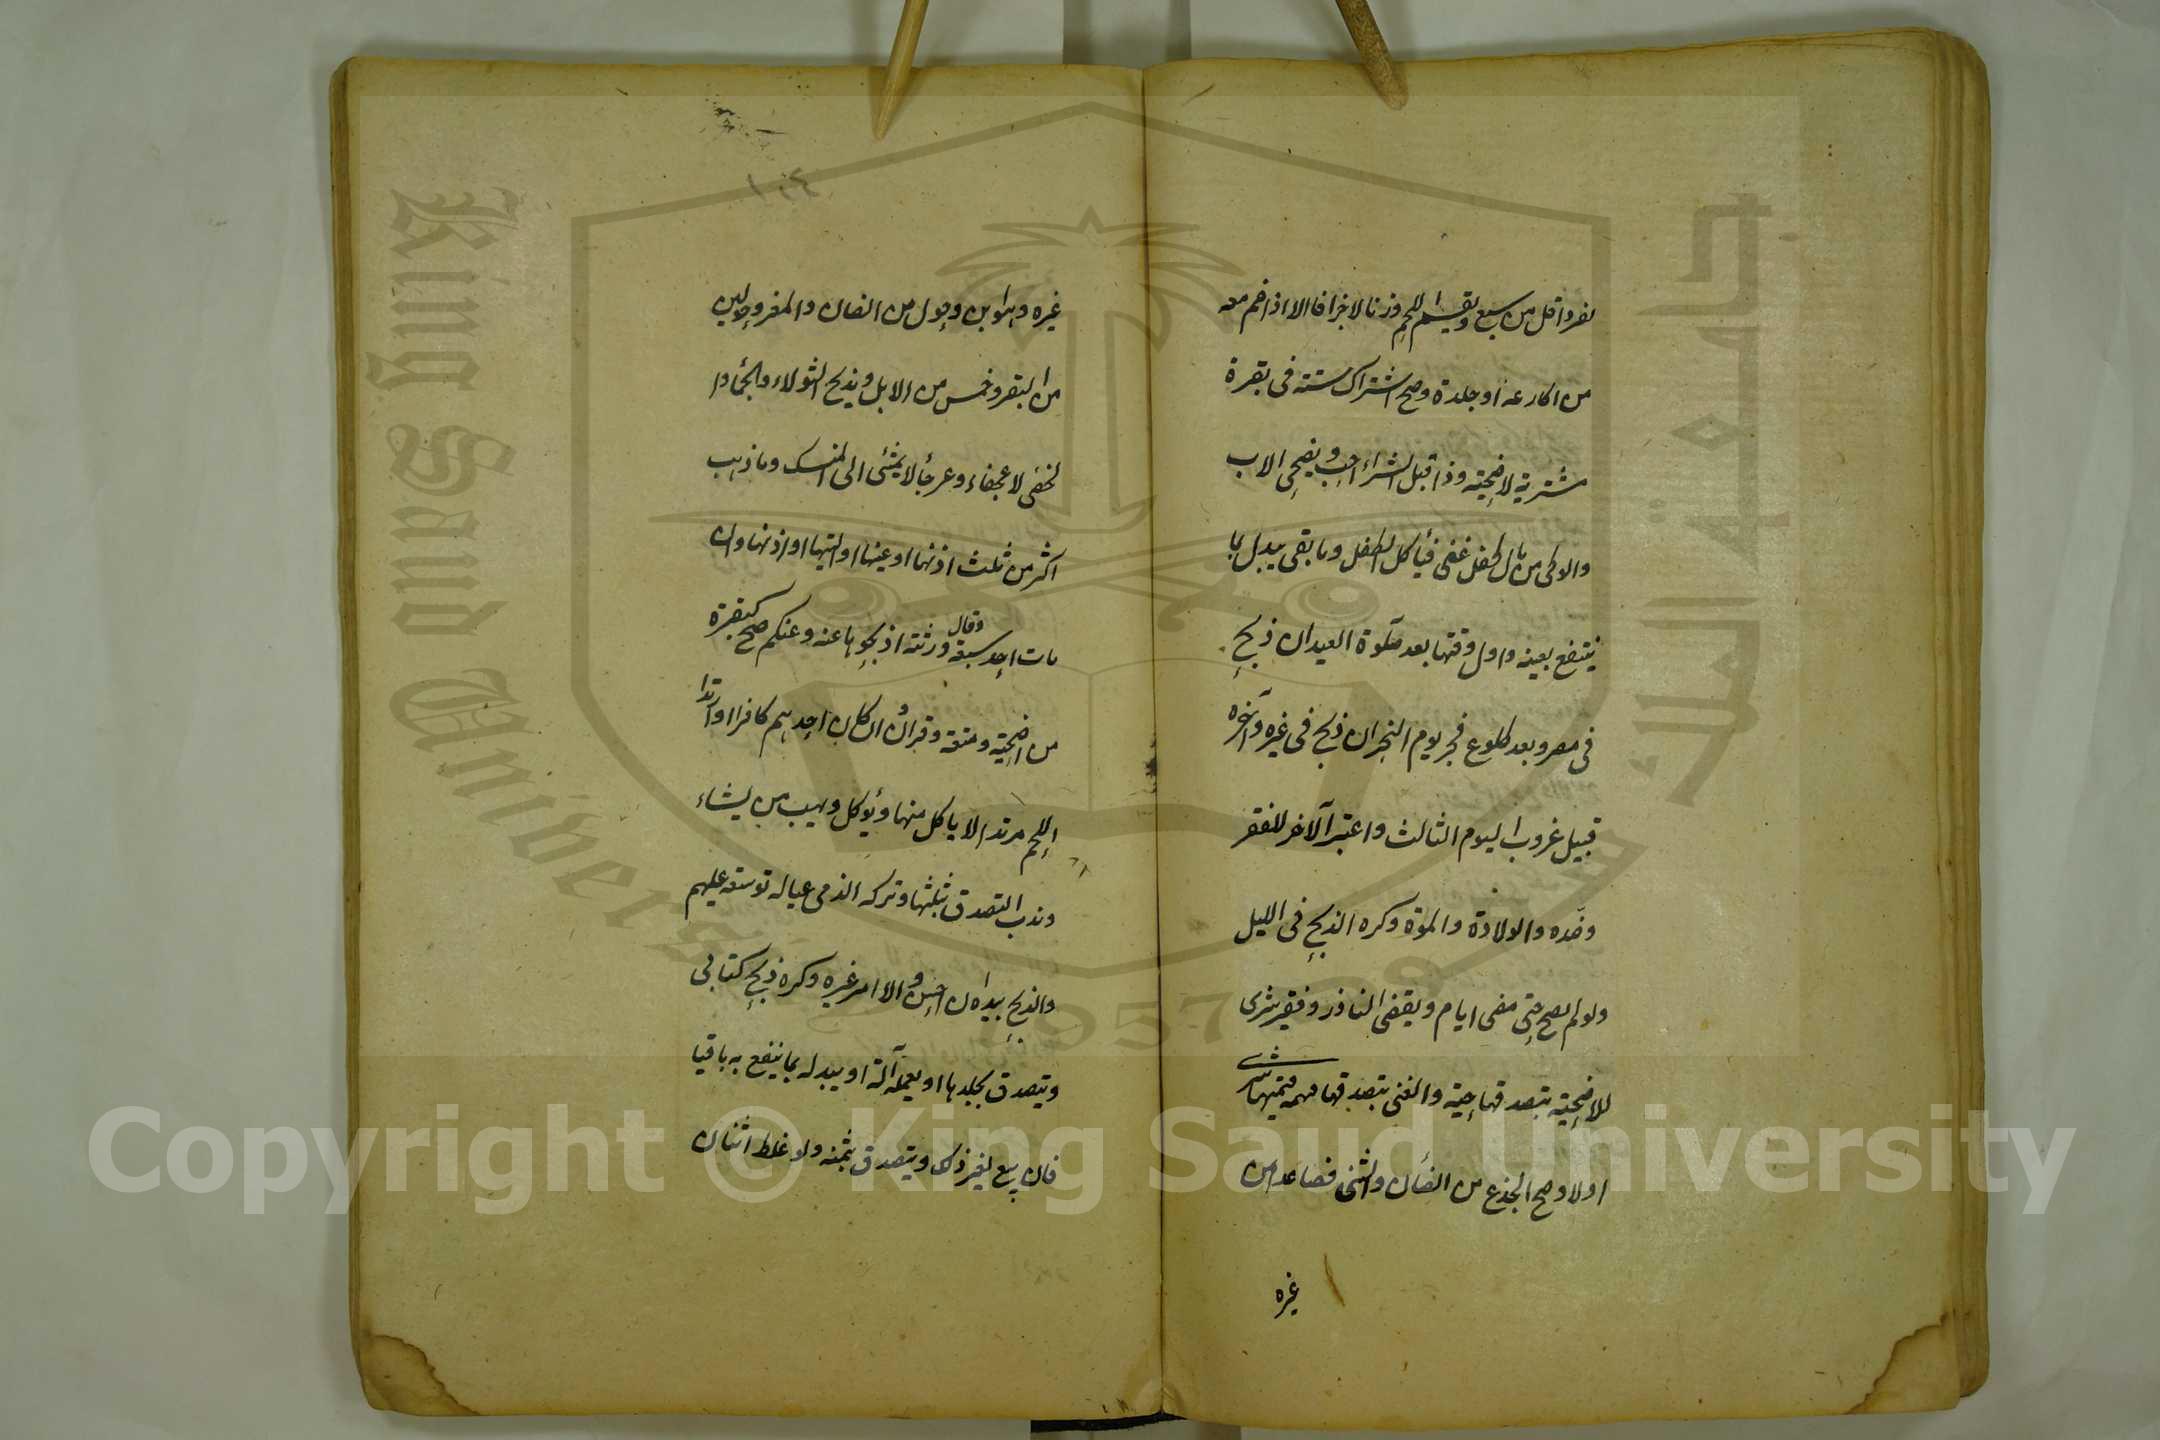 لفرد اقل من سبع ويقسم اللحم وزنا لا جزافا الا اذا ضم معه
من اكارعه او جلده وصح اشتراك ستة في بقرة
مشترية لاضحيته وذا قبل الشراء احب ويضحي الاب
والوصى من مال طفل غنى فيأكل الطفل وما بقى يبدل بما
ينتفع بعينه واول وقتها بعد صلوة العيد ان ذبح
في مصر وبعد طلوع فجر يوم النحر ان ذبح في غيره وآخره
قبيل غروب اليوم الثالث واعتبر الآخر للفقر
وضده والولادة والموت وكره الذبح في الليل
ولو لم يضح حتى مضى ايام ويقضى الناذر وفقير شرى
للاضحية بتصدقها حية والغنى بتصدق قيمتها شرى
اولا وصح الجذع من الضأن والثنى فصاعدا من
غيره
١٠٤
غيره وهو ابن وحول من الضان والمعز وحولين
من البقر وخمس من الابل ويذبح الثولاء والجماء وا
لخصى لا عجفاء وعرجاء لا يمشى الى المنسك وما ذهب
اكثر من ثلث اذنها او عينها او اليتها او ذنبها وان
مات احد سبعة وقال ورثته اذبحوها عنه وعنكم صح كبقرة
من اضحية ومتعة وقران وان كان احدهم كافرا او اراد
اللحم مريدا لا ياكل منها ويؤكل ويهب من يشاء
وندب التصدق بثلثها وتركه لذى عيال توسعة عليهم
والذبح بيده ان احسن والا امر غيره وكره ذبح كتابى
ويتصدق بجلدها او يعمله آلة او يبدله بما ينتفع به باقيا
فان بيع لغير ذلك ويتصدق بثمنه ولو غلط اثنان
Copyright © King Saud University
King Saud University
جامعة الملك
1957